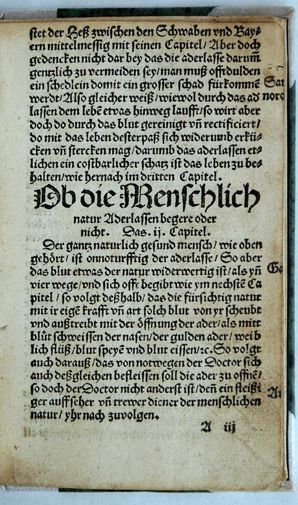 stet der Heß zwischen den Schwaben vnd Bay-
ern mittelmessig mit seinen Capitel/ Aber doch
gedencken nicht dar bey das die aderlasse darumb
gentzlich zu vermeiden sey/ man muß offt dulden
ein schedlein domit ein grosser schad fürkommen
werdt/ Also gleicher weiß/ wiewol durch das ad
lassen dem lebē etwas hinweg laufft/ so wirt aber
doch do durch das blut gereinigt vn̄ rectificiert/
do mit das leben dester paß sich wider vnd erkü-
cken vn̄ stercken mag/ darumb das aderlassen et-
lichen ein costbarlicher schatz ist das leben zu be-
halten/ wie hernach im dritten Capitel.
Ob die Menschlich
natur Aderlassen begere oder
nicht. Das .ij. Capitel.
Der gantz naturlich gesund mensch/ wie oben
gehört/ ist onnotturfftig der aderlasse/ So aber
das blut etwas der natur widerwertig ist/ als yn̄
vier wege/ vnd sich offt begibt wie ym nechstē Ca
pitel/ so volgt deßhalb/ das die fürsichtig natur
mit ir eigē krafft vn̄ art solch blut von yr scheubt
vnd außtreibt mit der öffnung der ader/ als mitt
blūt schweissen der nasen/ der gulden ader/ weib
lich flüß/ blut speyē vnd blut eissen/ ꝛc. So volgt
auch darauß/ das von notwegen der Doctor sich
auch deßgleichen befleissen soll die ader zu offnē/
so doch der Doctor nicht anderst ist/ deñ ein fleißi
ger auffseher vn̄ trewer diener der menschlichen
natur/ yhr nach zuvolgen.
A iij